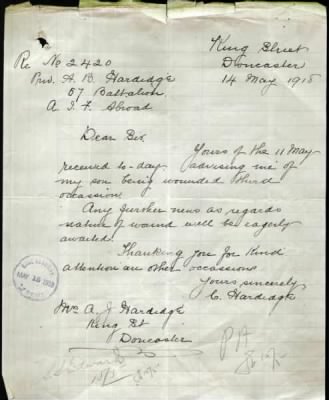 King Street
Re No 2420 Doncaster
Prvt. A. B. Hardidge 14 May 1918
57 Battalion
A I F Abroad
Dear Sir
Yours of the 11 May
received to-day advising me of
my son being wounded third
occassion
Any further news as regards
nature of wound will be eagerly
awaited.
Thanking you for kind
attention on other occassions
Yours sincerely
C. Hardidge
MAY 16 1918
Mrs A. J Hardidge
King St
Doncaster